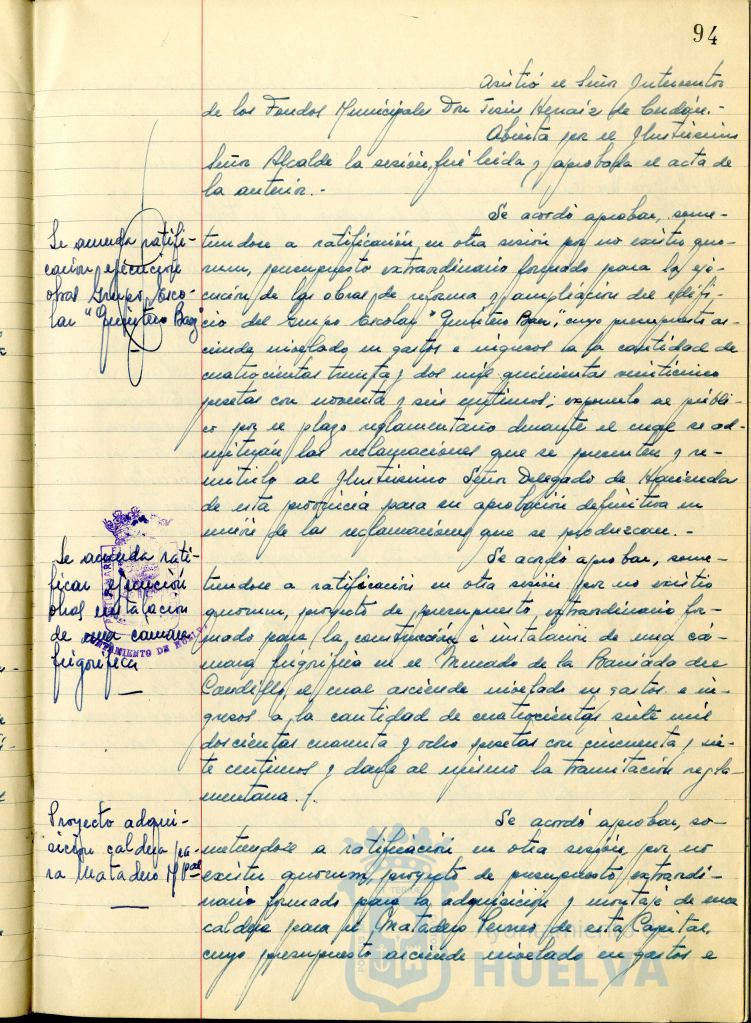 94
Asistió el Señor Interventor
de los Fondos Municipales Don Jesús de
Abierta por el Ilustrísimo
Señor Alcalde la sesión, fué leida y aprobada el acta de
la anterior.-
Se acuerda ratifi-
cación ejecución
obras Grupo Esco-
lar "Quintero Baez"
Se acordó aprobar, some-
tiendose a ratificación en otra sesión por no existir quo-
rum, presupuesto extraordinario formado para la eje-
cución de las obras de reforma y ampliación del edifi-
cio del Grupo Escolar "Quintero Baez", cuyo presupuesto as-
ciende nivelado en gastos e ingresos a la cantidad de
cuatrocientas treinta y dos mil quinientas veinticinco
pesetas con noventa y seis centimos; exponerlo al públi-
co por el plazo reglamentario durante el cual se ad-
mitirán las reclamaciones que se presenten y re-
mitirlo al Ilustrisimo Señor Delegado de Hacienda
de esta provincia para su aprobación definitiva en
unión de las reclamaciones que se produzcan.-
Se acuerda rati-
ficar ejecución
obras instalación
de una camara
frigorifica
AYUNTAMIENTO DE HUELVA
Se acordó aprobar, some-
tiendose a ratificación en otra sesión por no existir
quorum, proyecto de presupuesto extraordinario for-
mado para la construcción é instalación de una cá-
mara frigorifica en el Mercado de la Barriada del
Carmen, el cual asciende nivelado en gastos e in-
gresos a la cantidad de cuatrocientas siete mil
doscientas cuarenta y ocho pesetas con cincuenta y sie-
te centimos y darle al mismo la tramitación regla-
mentaria.-
Proyecto adqui-
sición caldera pa-
ra Matadero Mpal
Se acordó aprobar, so-
metiendose a ratificación en otra sesión, por no
existir quorum, proyecto de presupuesto extraordi-
nario formado para la adquisición y montaje de una
caldera para el Matadero de esta Capital,
cuyo presupuesto asciende nivelado en gastos e
Ayuntamiento de
HUELVA